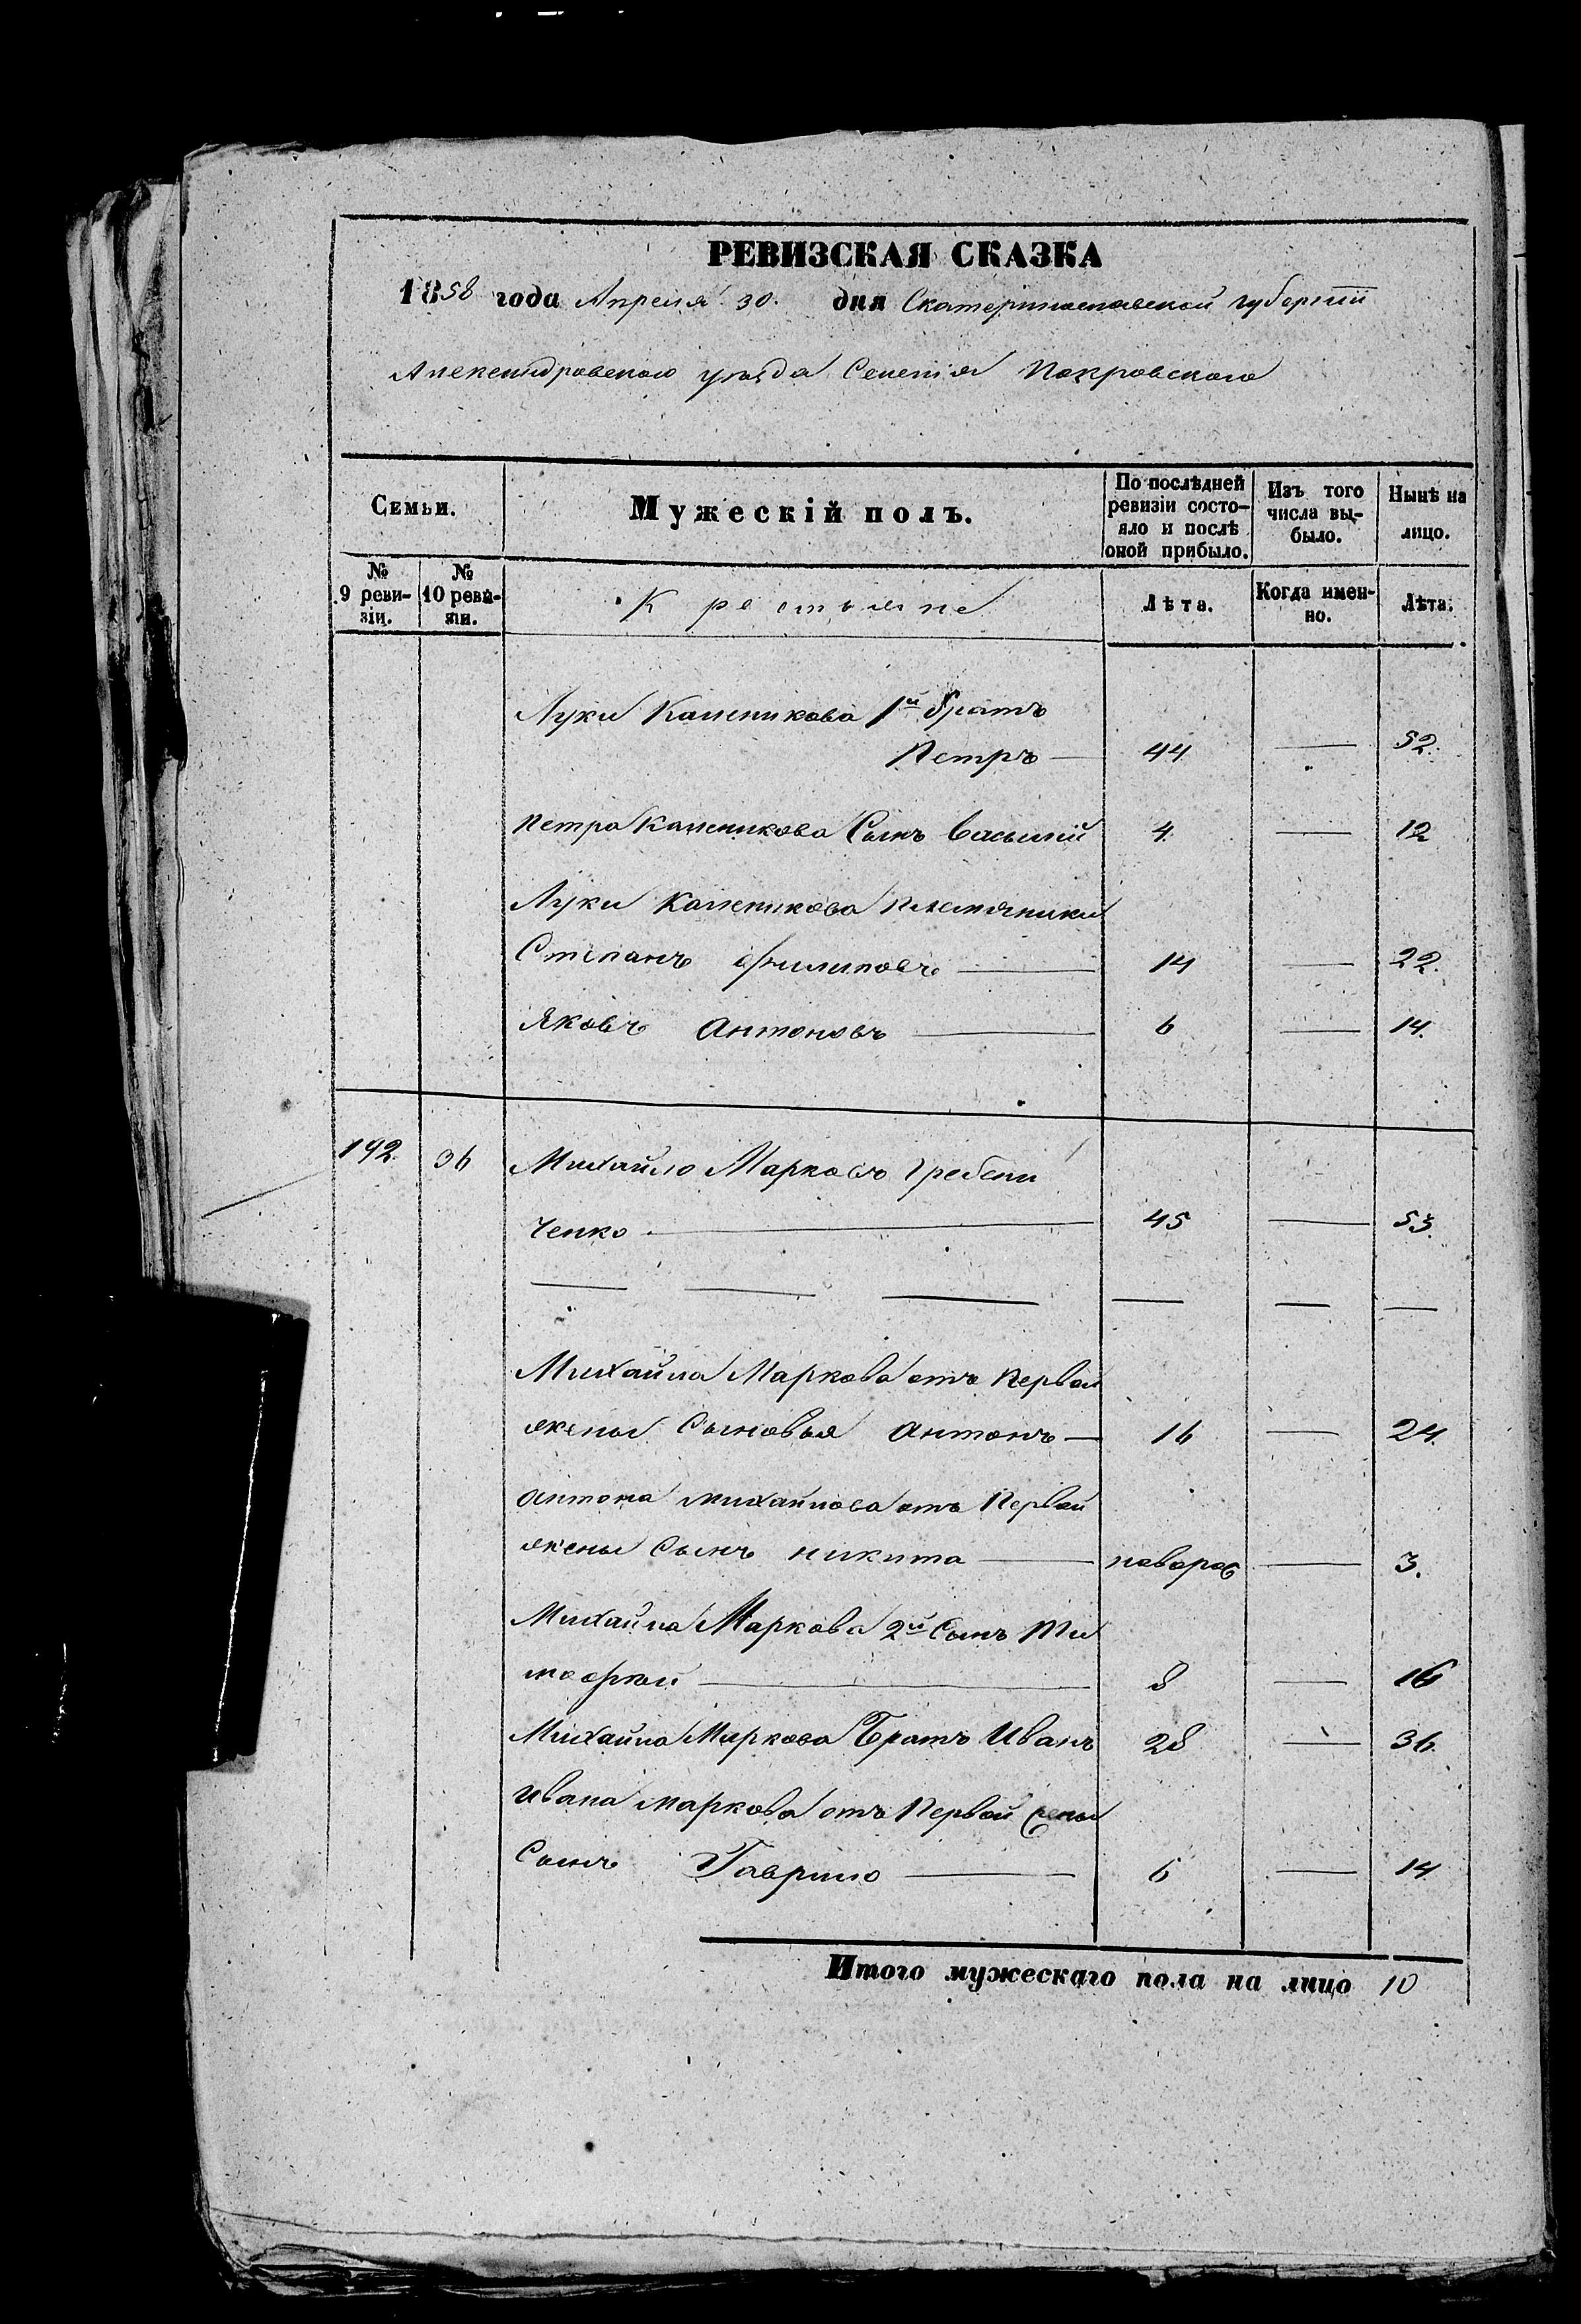 РЕВИЗСКАЯ СКАЗКА
1858 года Апреля 30. дня Екатеринославской губернии
Александровского уезда Селения Покровского
Семьи.
Мужескій полъ.
По послѣдней ревизіи состо-
яло и послѣ
оной прибыло.
Изъ того
числа вы-
было.
Нынѣ на
лицо.
№
9 реви-
зіи.
№
10 реви-
зіи.
Крестьяне
Лѣта.
Когда имен-
но.
Лѣта.
Луки Каленикова 1й братъ
Петръ — 44 — 52.
Петра Каленикова Сынъ Василий 4. — 12
Луки Каленикова племянники
Степанъ Филиповъ — 14 — 22.
Яковъ Антоновъ — 6 — 14.
192. 36 Михайло Марковъ Гребени
ченко — 45 — 53.
Михайла Маркова отъ Первой
жены Сыновья Антонъ — 16 — 24.
Антона Михайлова отъ Первой
жены Сынъ Никита — новорож — 3.
Михайла Маркова 2й Сынъ Ти
мофей — 8 — 16
Михайла Маркова Братъ Иванъ 28 — 36.
Ивана Маркова отъ Первой жены
Сынъ Гаврило — 6 — 14
Итого мужескаго пола на лицо 10